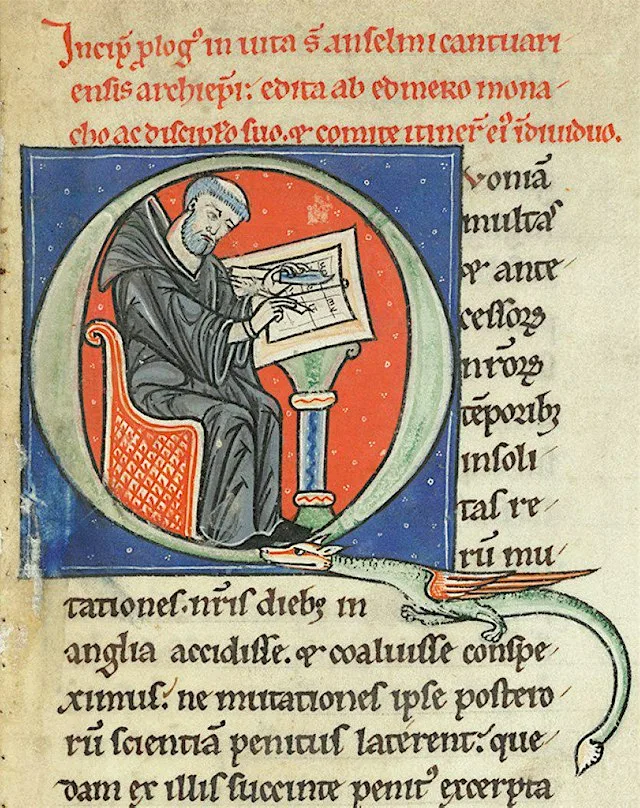 Incip̄ ꝓlogꝰ in uita s̄ anselmi cantuari
ensis archiep̄i: edita ab edmero mona
cho ac discip̄lo suo. & comite itiner̄ eiꝰ īdiuiduo.
Qvoniā
multaſ
& ante
ceſſoꝝ
nr̄oꝝ
tēporibꝫ
inſoli
taſ re
rū mu
tationeſ. nr̄is diebꝫ in
anglia accidiſſe. & coaluiſſe conſpe
ximuſ: ne mutationeſ ipſe poſtero
rū ſcientiā penituſ laterent: que
dam ex illiſ ſuccinte penitꝰ excerpta